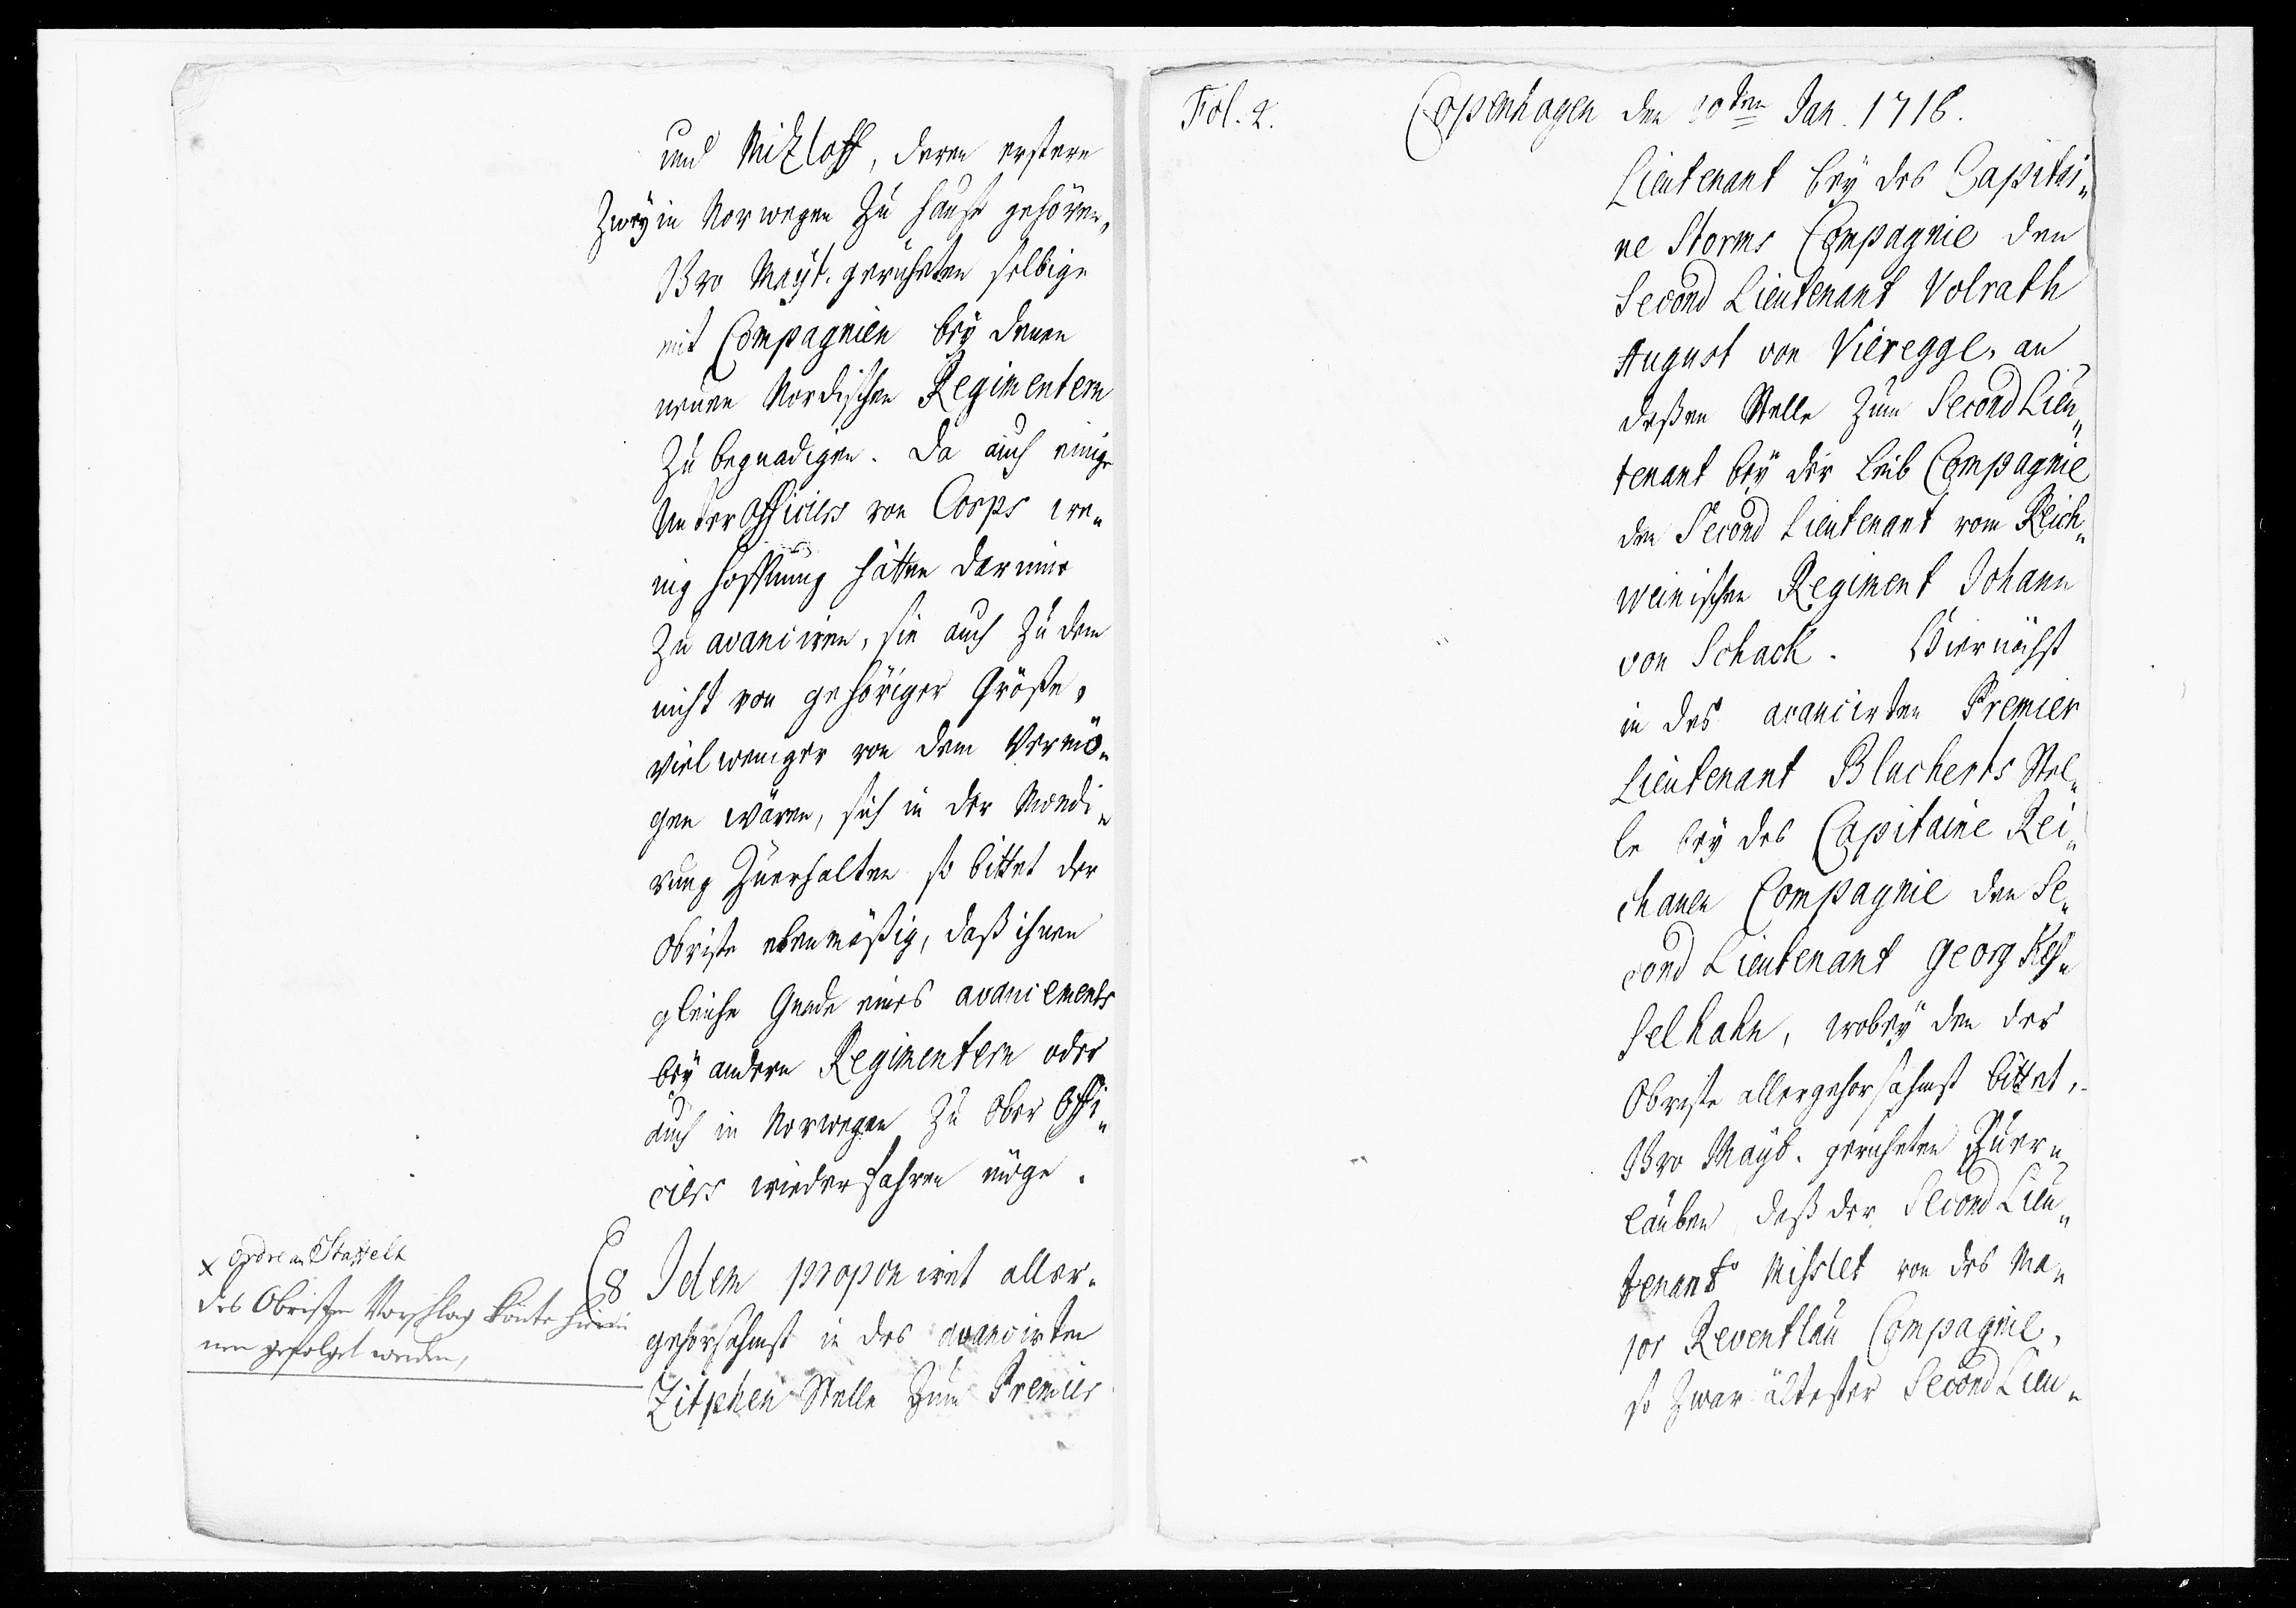 und Mitzloff, deren erstere
Zwey in Norwegen Zu Hause gehören,
Ihro Mayt. geruheten selbige
mit Compagnien bey denen
neuen Nordischen Regimentern
Zu begnadigen. Da auch einige
Unter Officiers von Corps we„
nig Hoffnung hätten darunter
Zu avanciren, sie auch Zu dem
nicht von gehöriger Größe,
viel weniger von dem Vermö„
gen wären, sich in der Mondi„
rung Zuerhalten so bittet der
Obriste ebenmäßig, daß ihnen
gleiche Gnade eines avancements
bey andern Regimentern oder
auch in Norwegen Zu Ober Offi„
ciers wiederfahren möge.
8 Idem proponiret aller„
gehorsahmst in des avancirten
Zitphen Stelle Zum Premier
x Ordre an Staffelt
des Obristen Vorschlag könte hierin
nen gefolget werden,
Fol. 2.
Copenhagen den 10ten Jan. 1718.
Lieutenant bey des Capitai„
ne Storms Compagnie den
Second Lieutenant Volrath
August von Vieregge, an
deßen Stelle Zum Second Lieu„
tenant bey der Leib Compagnie
den Second Lieutenant vom Reich„
weinischen Regiment Johann
von Schack. Hiernächst
in des avancirten Premier
Lieutenant Blucherts Stel„
le bey des Capitaine Rei„
chauen Compagnie den Se„
cond Lieutenant Georg Keß„
selhahn, wobey den der
Obriste allergehorsahmst bittet,
Ihro Mayt. geruheten Zuer„
läuben, daß der Second Lieu„
tenant Misslet von des Ma„
jor Reventlau Compagnie,
so Zwar ältester Second Lieu„